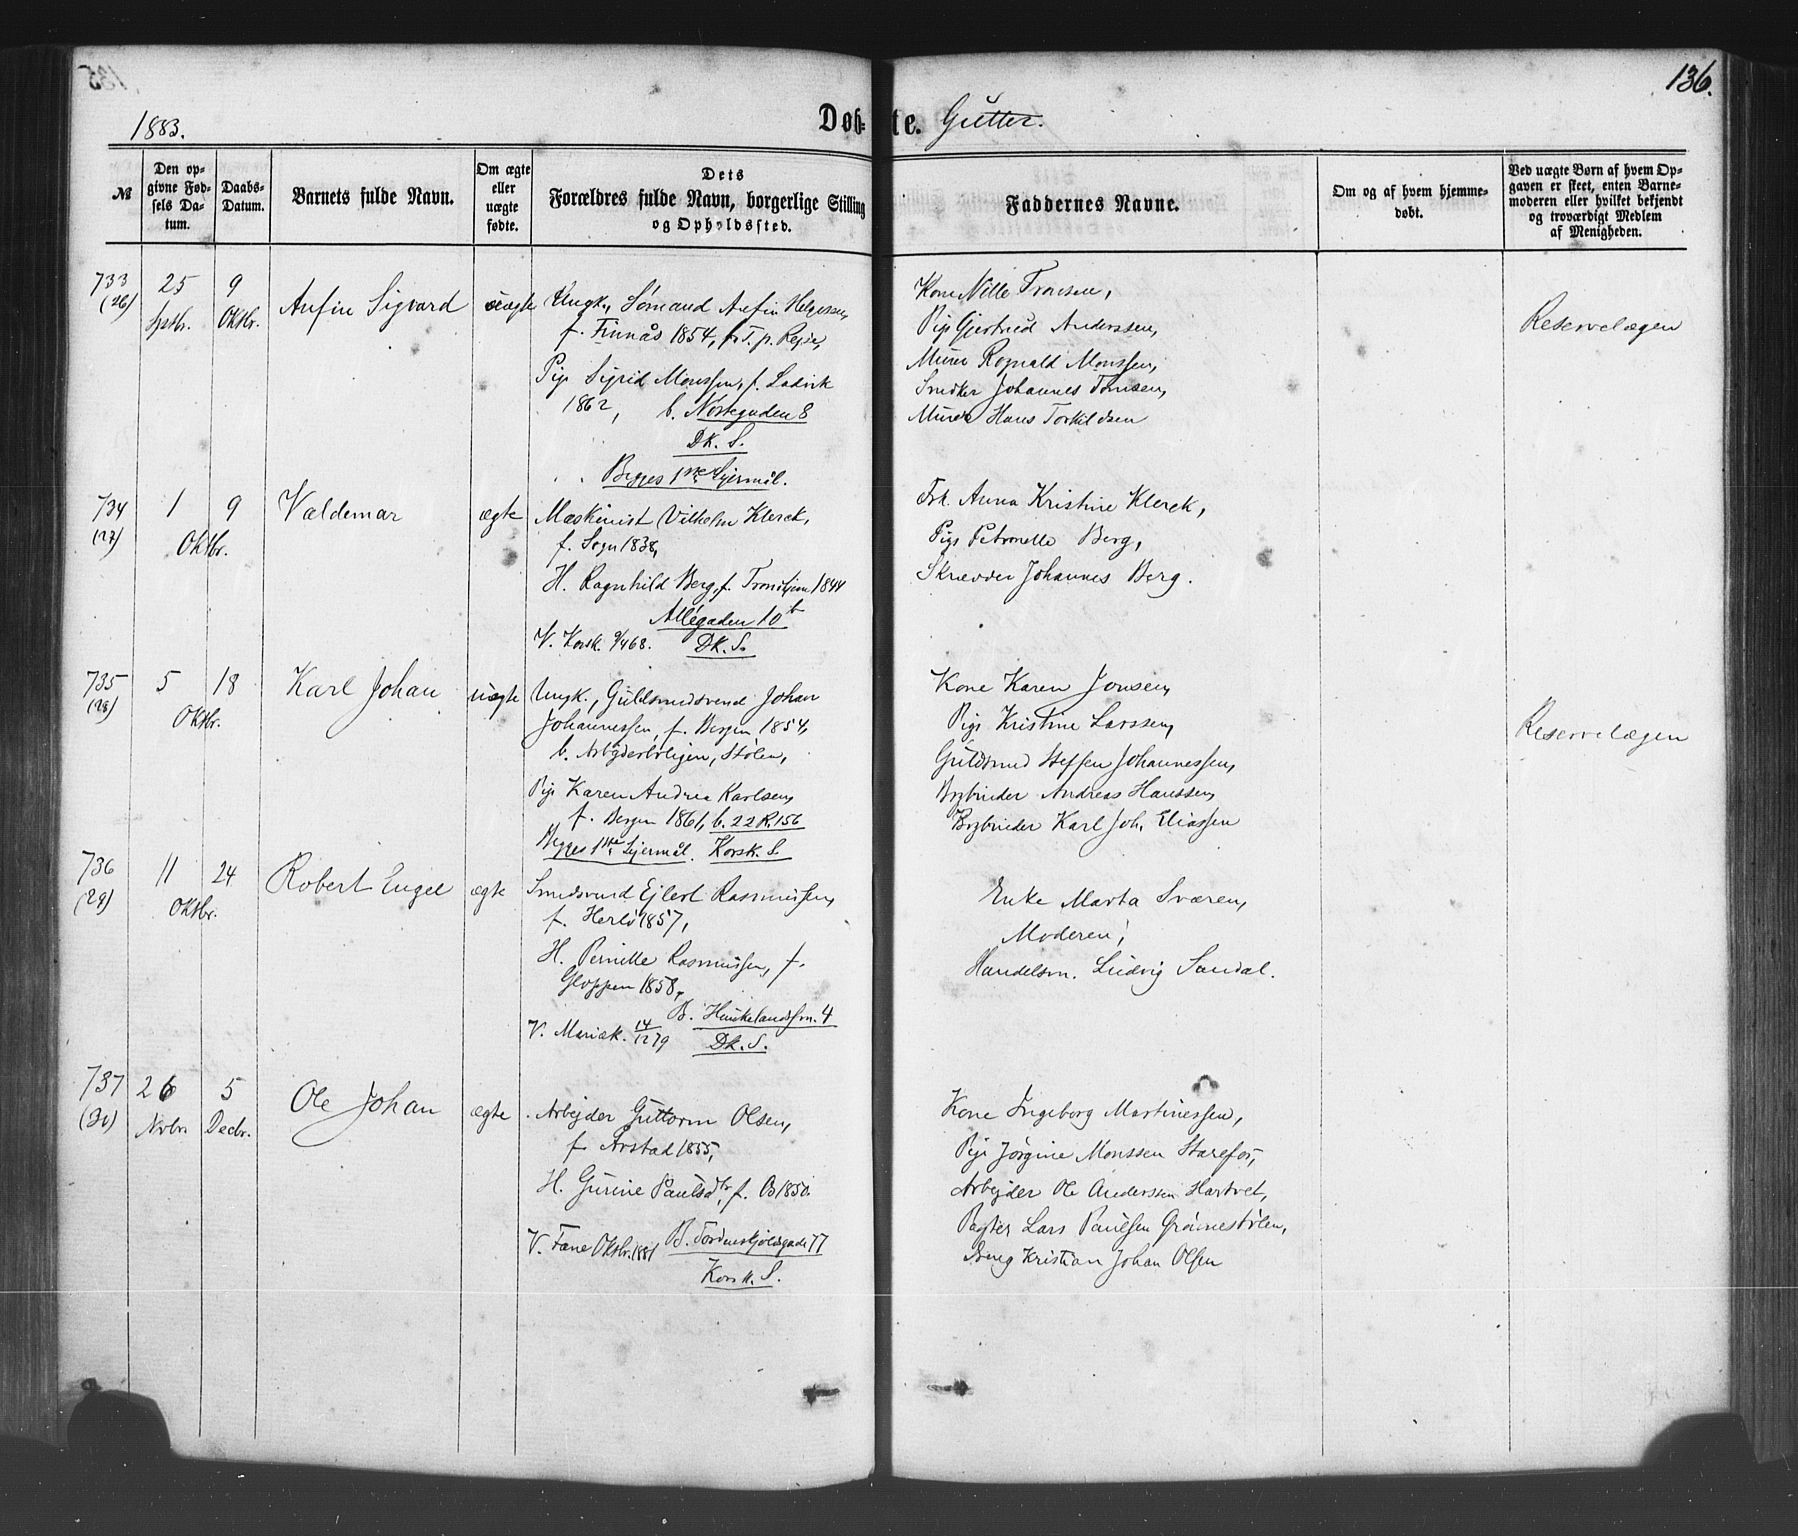 136.
1883.
Døb-te. Gutter.
№
Den opgivne Fødsels Datum.
Daabs-Datum.
Barnets fulde Navn.
Om ægte eller uægte fødte.
Dets Forældres fulde Navn, borgerlige Stilling og Opholdssted.
Faddernes Navne.
Om og af hvem hjemmedøbt.
Ved uægte Børn af hvem Opgaven er skeet, enten Barnemoderen eller hvilket bekjendt og troværdigt Medlem af Menigheden.
733 25 9 Anfin Sigvard uægte Ungk., Sømand Anfin Helgesen,
(26) Sptbr. Oktbr. f. Finnås 1854, p. T. p. Rejse,
Pige Sigrid Monssen, f. Ladvik
1862, b. Nøstegaden 8
Dk. S.
Begges 1ste Lejermål.
Kone Nille Tronsen,
Pige Gjertrud Anderssen,
Murer Rognald Monssen,
Snedker Johannes Tomsen,
Murer Hans Torkildsen
Reservelægen
734 1 9 Valdemar ægte Maskinist Vilhelm Klerck,
(27) Oktbr. f. Sogn 1838,
H. Ragnhild Berg, f. Trondhjem 1844
Allégaden 10b
V. Korsk. 9/4 68. Dk. S.
Frk. Anna Kristine Klerck,
Pige Petronelle Berg,
Skrædder Johannes Berg.
735 5 18 Karl Johan uægte Ungk., Guldsmedsvend Johan
(28) Oktbr. Johannessen, f. Bergen 1854,
b. Arbejderboligen, Stølen,
Pige Karen Andrea Karlsen,
f. Bergen 1861, b. 22 R. 156
Begges 1ste Lejermål. Korsk. S.
Kone Karen Jonsen,
Pige Kristine Larssen,
Guldsmed Steffen Johannessen,
Bogbinder Andreas Hanssen,
Bogbinder Karl Joh. Eliassen
Reservelægen
736 11 24 Robert Engel ægte Smedsvend Ejlert Rasmussen,
(29) Oktbr. f. Herlø 1857,
H. Pernille Rasmussen, f.
Gloppen 1858,
B. Haukelandssm. 4
V. Mariæk. 14/12 79 Dk. S.
Enke Marta Sværen,
Moderen,
Handelsm. Ludvig Sandal.
737 26 5 Ole Johan ægte Arbejder Guttorm Olsen,
(30) Nvbr. Decbr. f. Årstad 1855,
H. Gurine Paulsdtr, f. Os 1850.
V. Fane Oktbr. 1881 B. Tordenskjoldsgade 77
Korsk. S.
Kone Ingeborg Martinessen,
Pige Jørgine Monssen Starefos,
Arbejder Ole Anderssen Hartvet,
Pagter Lars Paulsen Grønnestølen,
Dreng Kristian Johan Olsen